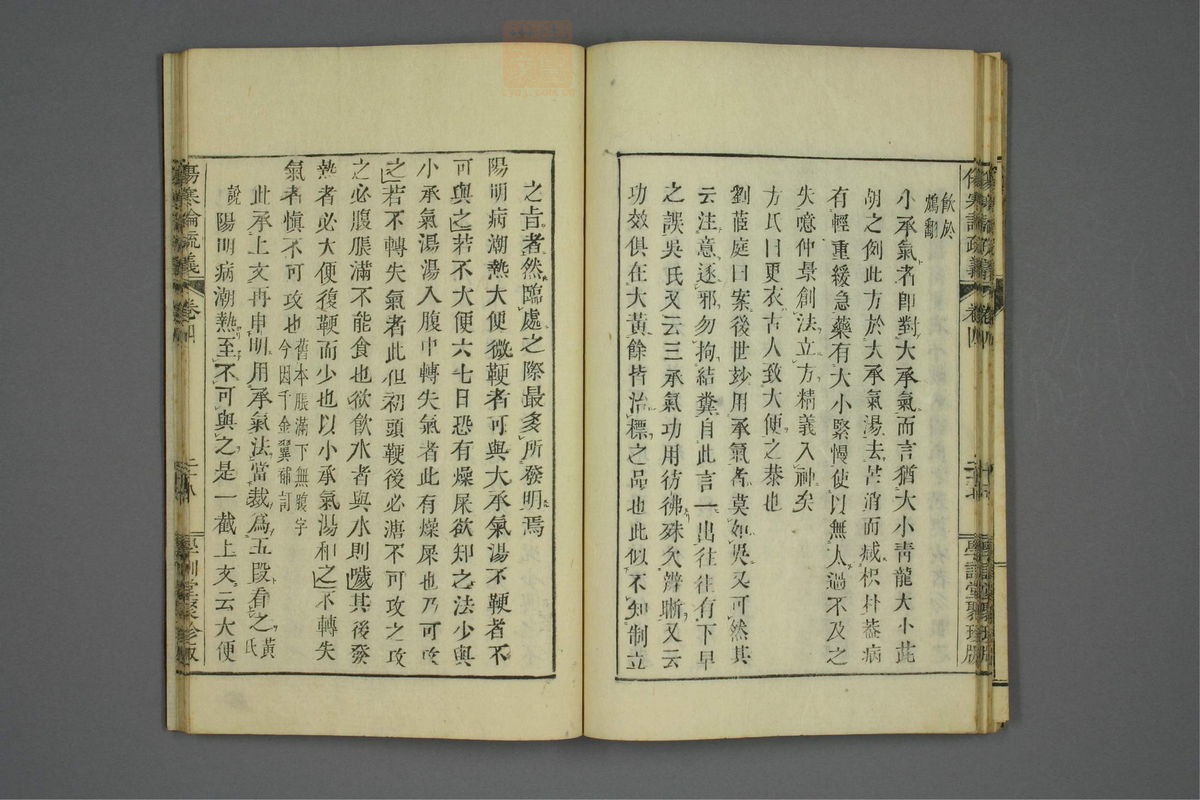 飲於
鷉翻
小承氣者即對大承氣而言猶大小青龍大小茈
胡之例此方於大承氣湯去芒消而減枳朴蓋病
有輕重緩急藥有大小緊慢使以無太過不及之
失噫仲景創法立方精義入神矣
方氏曰更衣古人致大便之恭也
劉茝庭曰案後世玅用承氣者莫如吳又可然其
云注意逐邪勿拘結糞自此言一出往往有下早
之誤吳氏又云三承氣功用彷彿殊欠辨晣又云
功效俱在大黃餘皆治標之品也此似不知制立
之旨者然臨處之際最多所發明焉
陽明病潮熱大便微鞕者可與大承氣湯不鞕者不
可與之若不大便六七日恐有燥屎欲知之法少與
小承氣湯湯入腹中轉失氣者此有燥屎也乃可攻
之若不轉失氣者此但初頭鞕後必溏不可攻之攻
之必腹脹滿不能食也欲飲水者與水則噦其後發
熱者必大便復鞕而少也以小承氣湯和之不轉失
氣者慎不可攻也
舊本脹滿下無腹字
今因千金翼補訂
此承上文再申明用承氣法當裁爲五段看之
黃氏
說
陽明病潮熱至不可與之是一截上文云大便
傷寒論疏義
卷四
二十八
學訓堂聚珍版